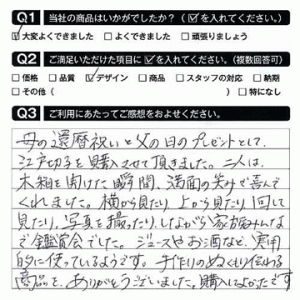 Q1 当社の商品はいかがでしたか？（☑を入れてください。）
☑大変よくできました □よくできました □頑張りましょう
Q2 ご満足いただけた項目に☑を入れてください。（複数回答可）
□価格 □品質 ☑デザイン □商品 □スタッフの対応 □納期
□その他（ ） □特になし
Q3 ご利用にあたってご感想をおよせください。
母の還暦祝いと父の日のプレゼントとして、
江戸切子を購入させて頂きました。二人は、
木箱を開けた瞬間、満面の笑みで喜んで
くれました。横から見たり、上から見たり、回して
見たり、写真を撮ったり、しながら家族みんな
で鑑賞会でした。ジュースやお酒など、実用
的に使っているようです。手作りのぬくもり伝わる
商品を、ありがとうございました。購入してよかったです